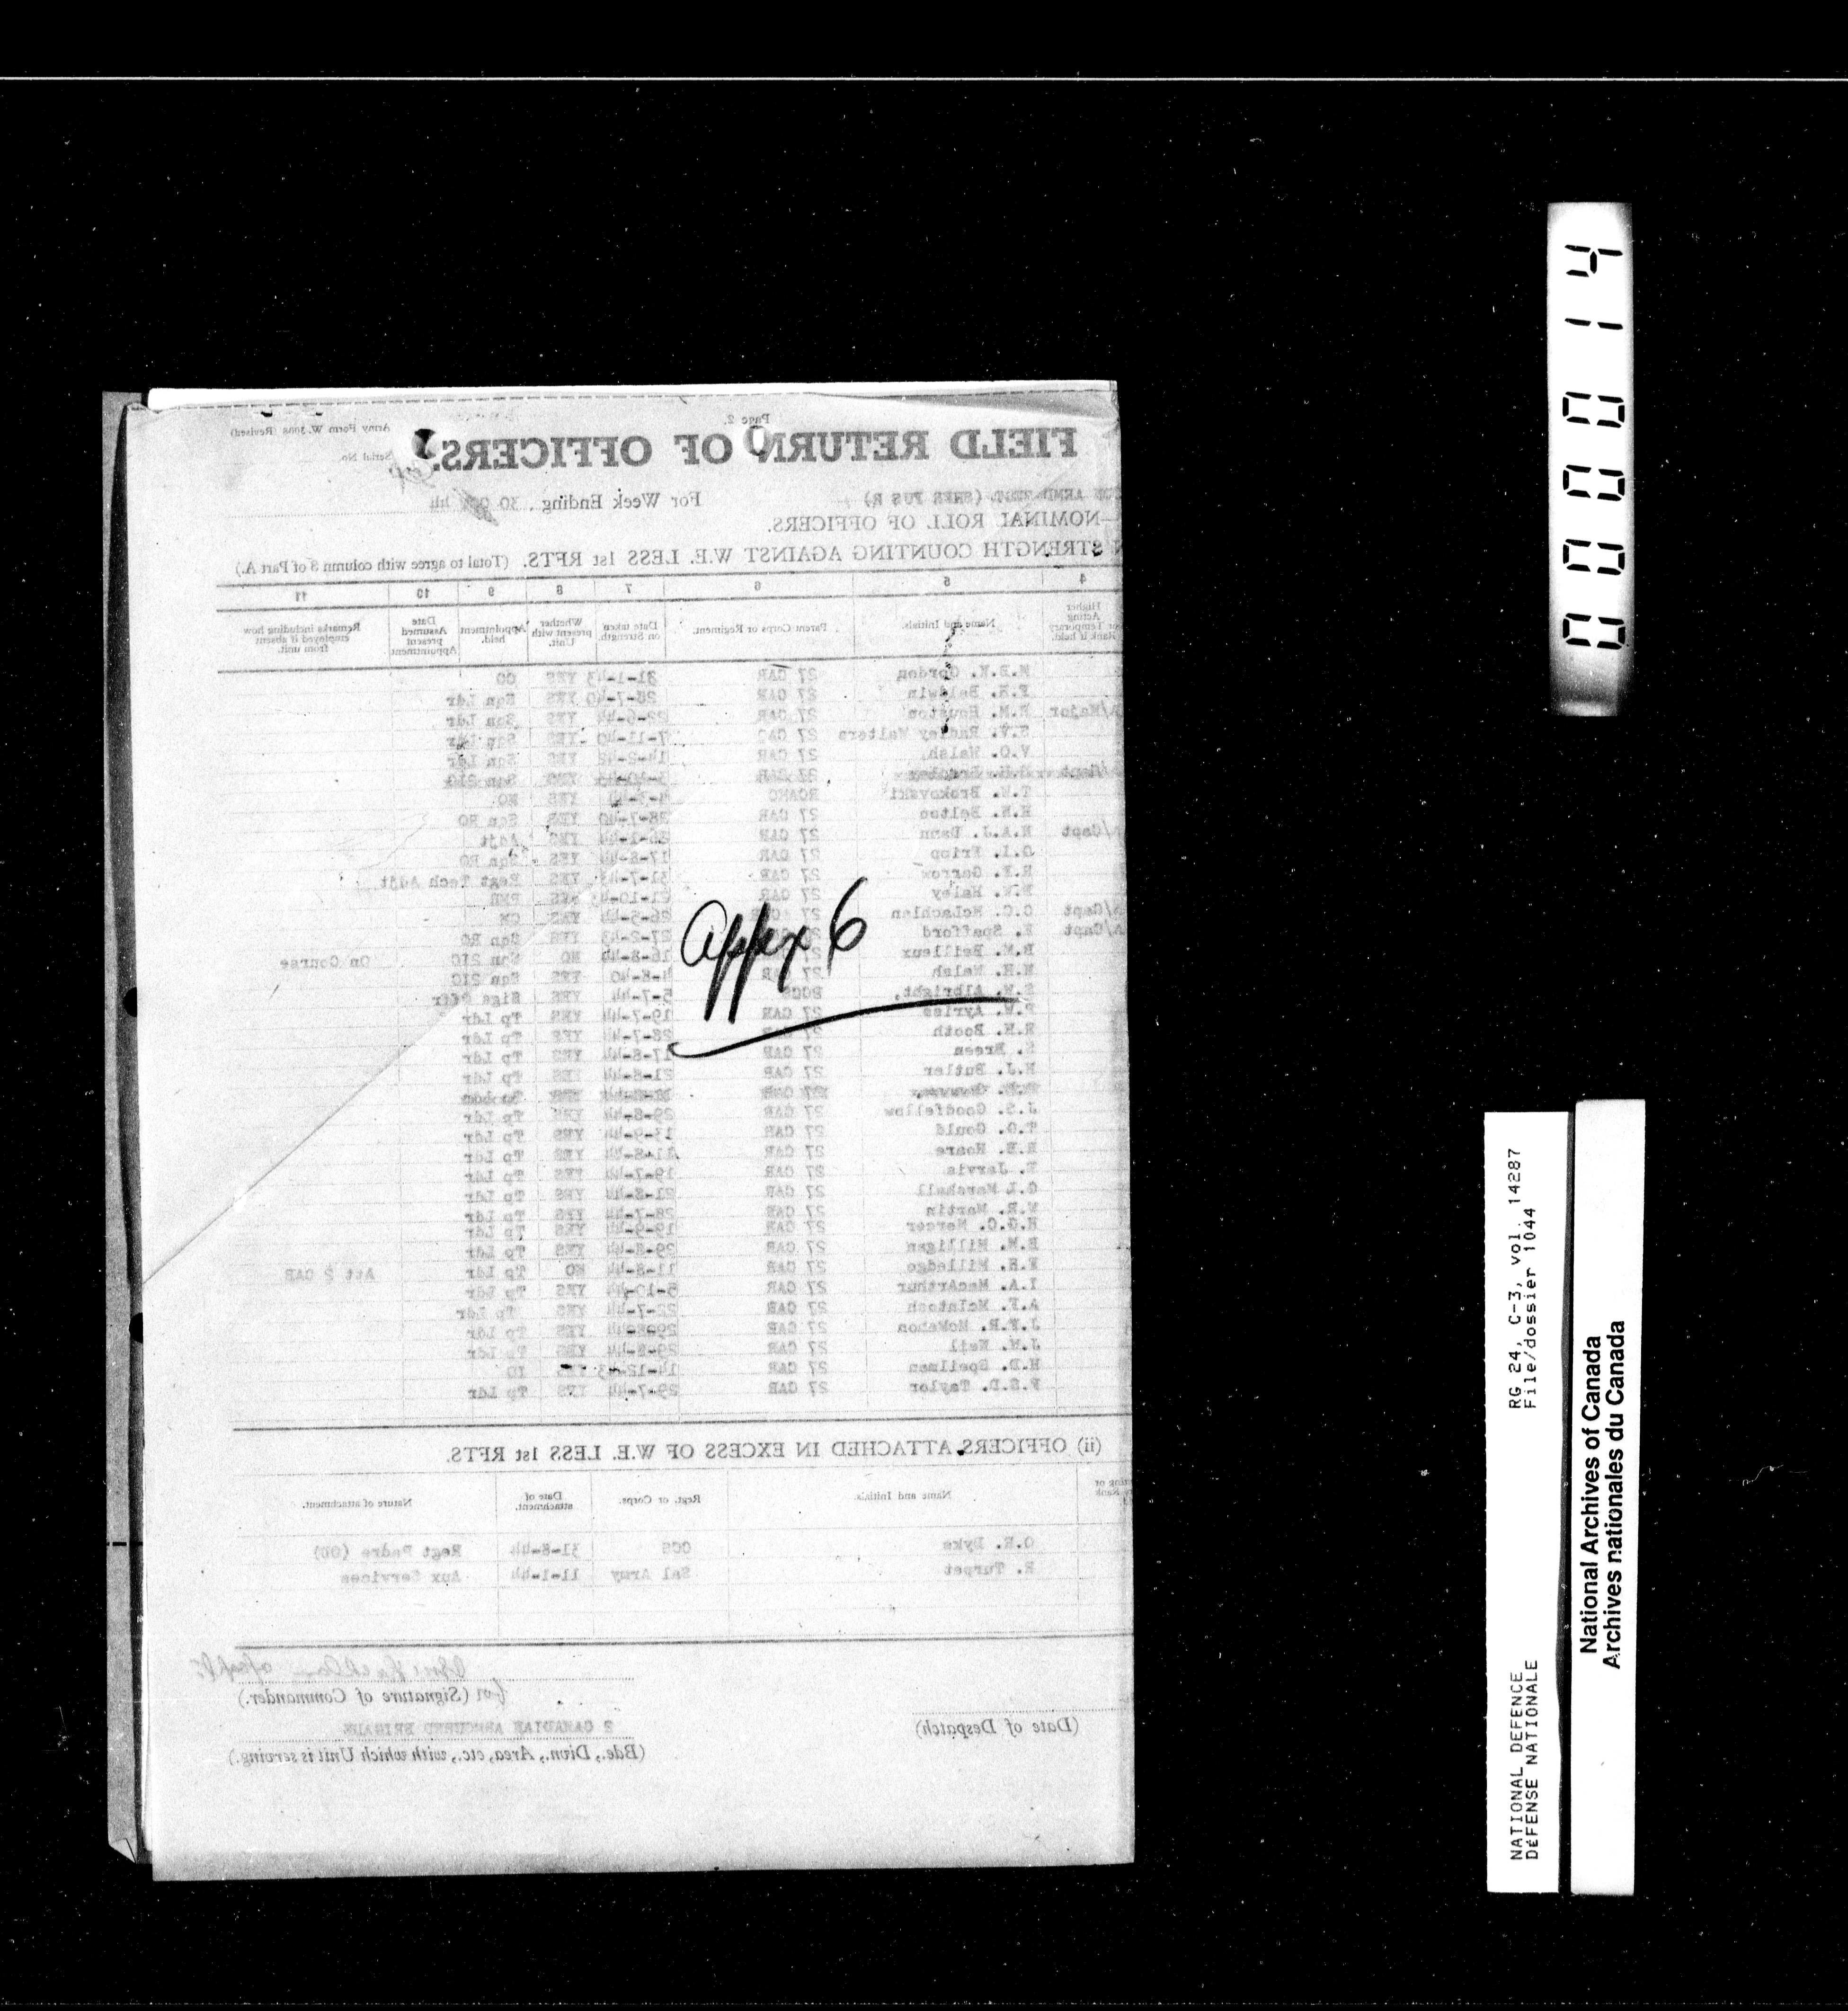 Page 2.
Army Form W.3008 (Revised)
Serial No.
FIELD RETURN OF OFFICERS.
ARMD REGT (SHER FUS R)
For Week Ending 30 44
—NOMINAL ROLL OF OFFICERS.
STRENGTH COUNTING AGAINST W.E. LESS 1st RFTS. (Total to agree with column 3 of Part A.)
4 5 6 7 8 9 10 11
Higher Acting or Temporary Rank if held. Name and Initials. Parent Corps or Regiment. Date taken on Strength. Whether present with Unit. Appointment held. Date Assumed present Appointment Remarks including how employed if absent from unit.
M.B.K. Gordon 27 CAR 31-1-43 YES CO
F.H. Baldwin 27 CAR 28-7-40 YES Sqn Ldr
A/Major R.M. Houston 27 CAR 22-6-44 YES Sqn Ldr
S.V. Radley Walters 27 CAC 7-11-40 YES Sqn Ldr
V.O. Walsh 27 CAR 14-2-42 YES Sqn Ldr
A/Capt 27 CAR YES Sqn 2IC
T.W. Brokovski RCAMC YES MO
H.H. Belton 27 CAR 28-7-40 YES Sqn RO
A/Capt N.A.J. Dann 27 CAR 26-1-44 YES Adjt
O.I. Friop 27 CAR 17-8-44 YES Sqn RO
R.F. Garrow 27 CAR 31-7-43 YES Regt Tech Adjt
W.W. Haley 27 CAR 21-10-43 YES PMR
A/Capt C.C. McLachlan 27 26-5-44 YES QM
A/Capt E. Spafford 27-2-43 YES Sqn RO
B.M. Beilleux 27 16-8-44 NO Sqn 2IC On Course
N.H. Walsh 27 CAR 4-8-40 YES Sqn 2IC
S.W. Albright, RCCS 5-7-44 YES Sigs Offr
P.W. Ayriss 27 CAR 19-7-44 YES Tp Ldr
R.H. Booth 27 CAR 28-7-44 YES Tp Ldr
S. Breen 27 CAR 17-8-44 YES Tp Ldr
H.J. Butler 27 CAR 21-8-44 YES Tp Ldr
27 CAR YES
J.S. Goodfellow 27 CAR 29-8-44 YES Tp Ldr
T.O. Gould 27 CAR 13-9-44 YES Tp Ldr
E.B. Hoare 27 CAR 11-8-44 YES Tp Ldr
T. Jarvis 27 CAR 19-7-44 YES Tp Ldr
G.L Marshall 27 CAR 21-8-44 YES Tp Ldr
W.R. Martin 27 CAR 28-7-44 YES Tp Ldr
H.G.C. Mercer 27 CAR 19-9-44 YES Tp Ldr
E.M. Milligan 27 CAR 29-8-44 YES Tp Ldr
F.H. Milledge 27 CAR 11-8-44 NO Tp Ldr Att 2 CAB
I.A. MacArthur 27 CAR 5-10-44 YES Tp Ldr
A.F. McIntosh 27 CAR 22-7-44 YES Tp Ldr
J.F.R. McMahon 27 CAR YES Tp Ldr
J.W. Neil 27 CAR 29-8-44 YES Tp Ldr
H.D. Spellman 27 CAR 14-12-43 YES IO
F.S.D. Taylor 27 CAR 29-7-44 YES Tp Ldr
Appex 6
(ii) OFFICERS ATTACHED IN EXCESS OF W.E. LESS 1st RFTS.
Name and Initials. Regt. or Corps. Date of attachment. Nature of attachment.
O.R. Dyke CCS 31-8-44 Regt Padre (OD)
R. Turpet Sal Army 11-1-44 Aux Services
for (Signature of Commander.)
(Date of Despatch)
2 CANADIAN ARMOURED BRIGADE
(Bde., Divn., Area, etc., with which Unit is serving.)
000014
RG 24, C-3, vol. 14287
File/dossier 1044
NATIONAL DEFENCE
DÉFENSE NATIONALE
National Archives of Canada
Archives nationales du Canada